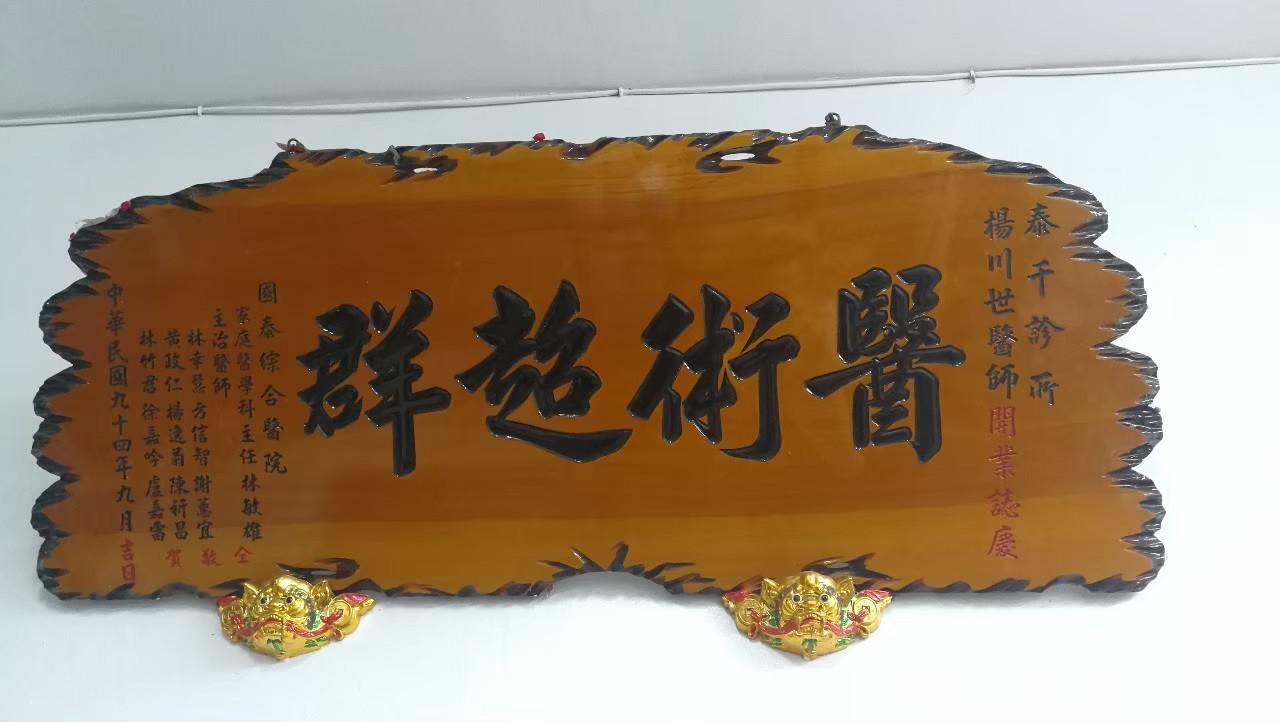 泰千診所
楊川世醫師開業誌慶
醫術超群
國泰綜合醫院
家庭醫學科主任林敏雄仝
主治醫師
林幸慧方信智謝蕙宜敬
黃政仁楊逸菊陳祈昌賀
林竹君徐嘉吟盧嘉雷
中華民國九十四年九月吉日